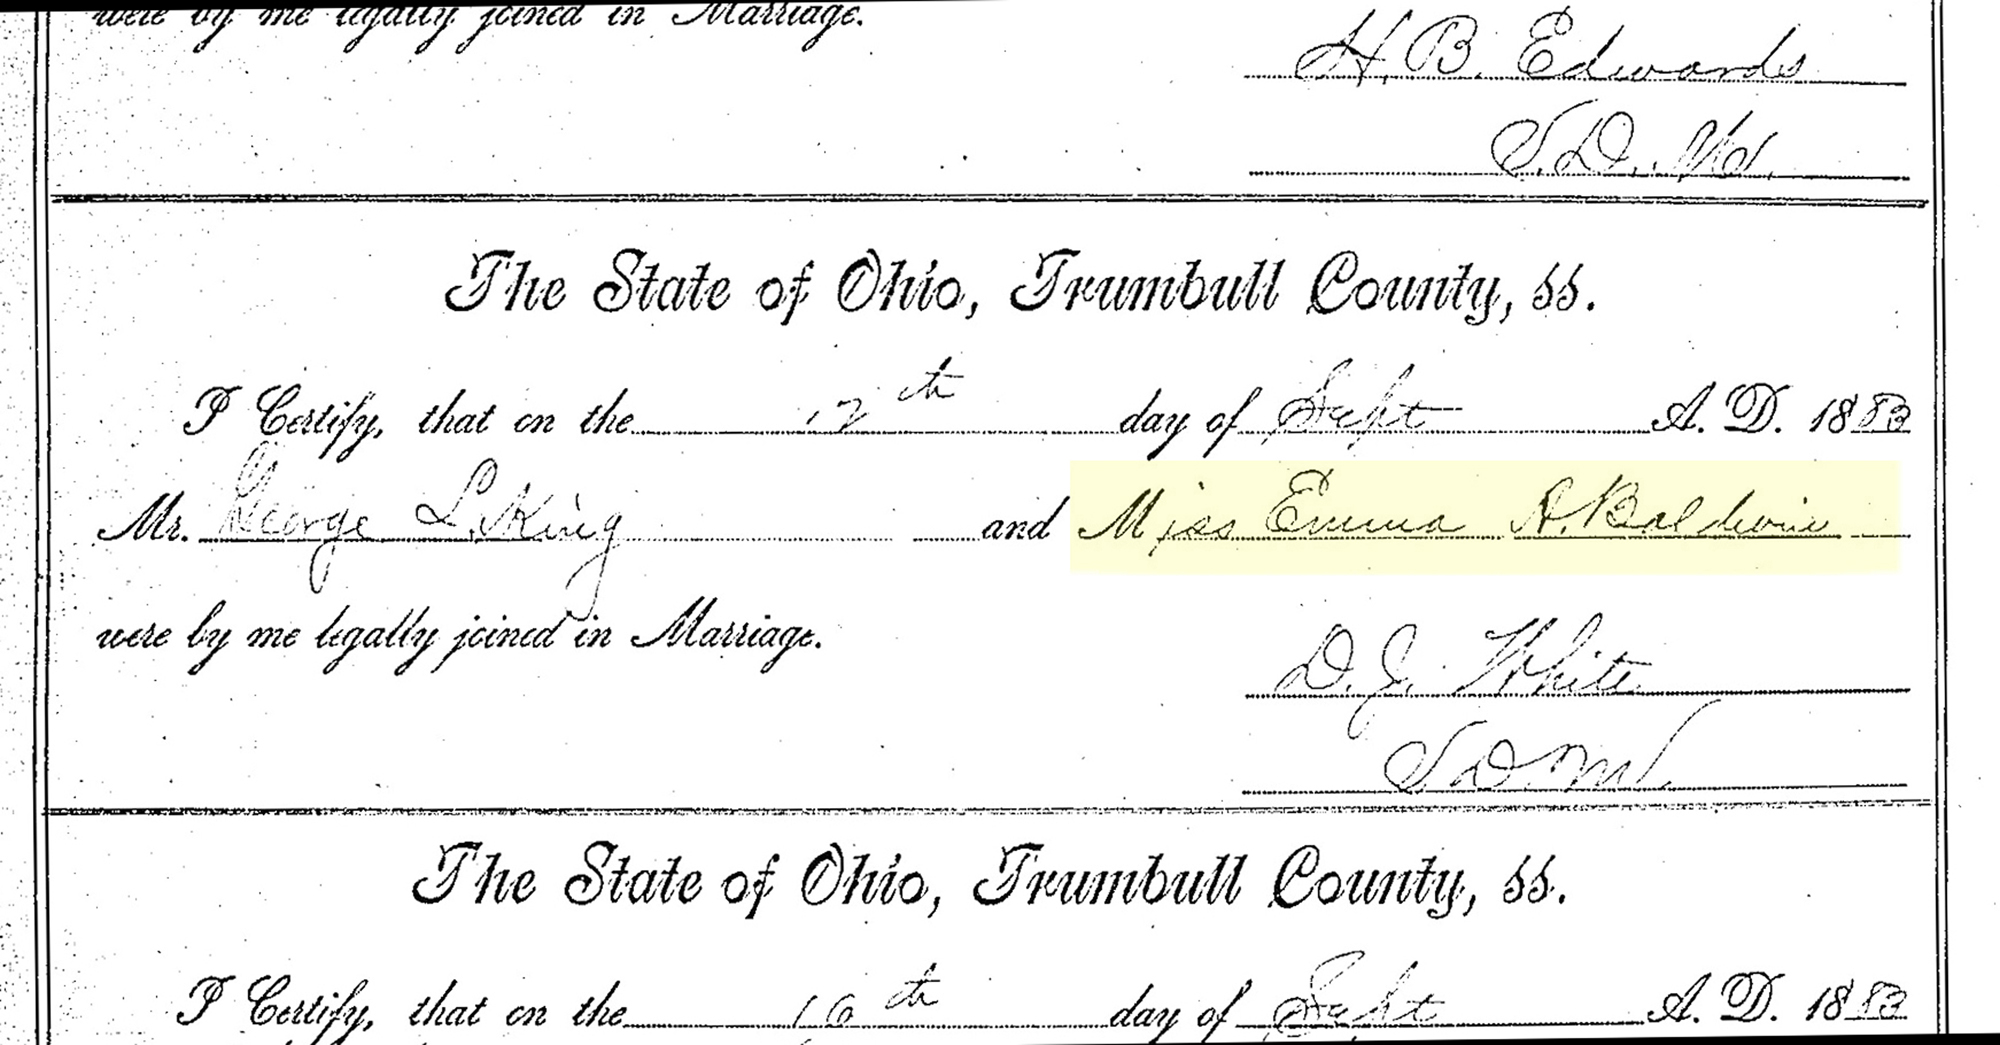 were by me legally joined in Marriage.
H. B. Edwards
V. D. M.
The State of Ohio, Trumbull County, ss.
I Certify, that on the 12th day of Sept A. D. 1883
Mr. George L. King and Miss Emma A. Baldwin
were by me legally joined in Marriage.
D. J. White
V D M
The State of Ohio, Trumbull County, ss.
I Certify, that on the 16th day of Sept A. D. 1883